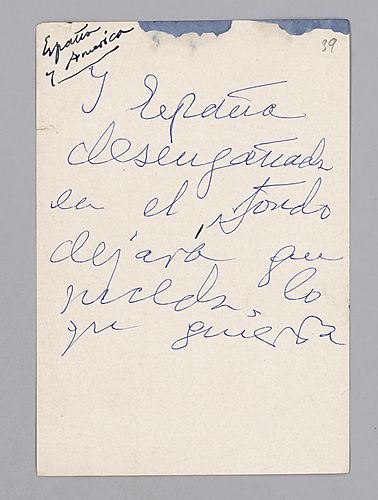 España
y America
39
Y España
desengañada
en el fondo
dejará que
suceda lo
que quiera